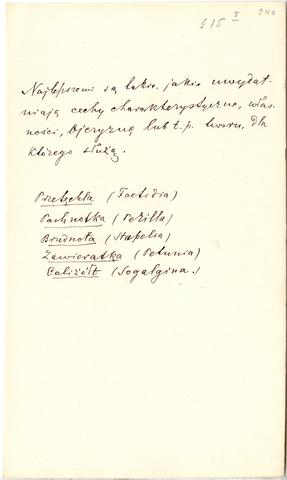 415 I
Najlepszemi są takie, jakie uwydat-
niają cechy charakterystyczne, włas-
ności, Ojczyznę lub t. p. tworu, dla
którego służą.
Przetęchła (Foetidia)
Pachnotka (Perilla)
Brudnota (Stapelia)
Zawieratka (Petunia)
Caliżółt (Sogalgina.)